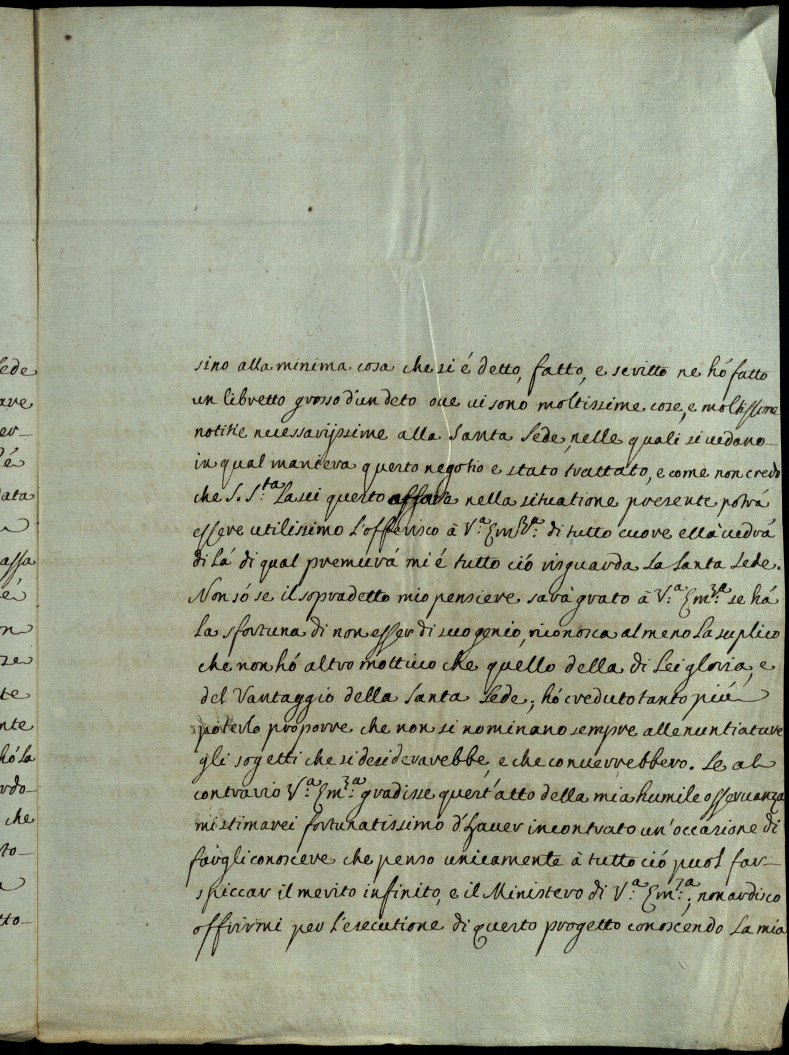 sino alla minima cosa che si é detto, fatto, e scritto né hó fatto
un libretto grosso d'un deto oue ui sono moltissime cose, e moltissime
notitie necessarijssime alla Santa Sede, nelle quali si uedano
in qual maniera questo negotio e stato trattato, e come non credo
che S. S.ta Lasci questo affare nella situatione presente, potrá
essere utilissimo L'offerisco à V.a Em.za di tutto cuore ella uedrá
di Lá di qual premurá mi é tutto ció risguarda La Santa Sede.
Non só se il sopradetto mio pensiere sará grato à V.a Em.za se há
La sfortuna di non esser di suo genio, riconosca almeno La suplico
che non hó altro mottiuo che quello della di Lei gloria, e
del Vantaggio della Santa Sede; hó creduto tanto piú
poterlo proporre che non si nominano sempre alle nuntiature
gli sogetti che si desiderarebbe, e che conuerrebbero. Se al
contrario V.a Em.za gradisse quest'atto della mia humile osseruanza
mi stimarei fortunatissimo d'hauer incontrato un'occasione di
fargli conoscere che penso unicamente à tutto ció puol far
spiccar il merito infinito, e il Ministero di V.a Em.za; non ardisco
offrirmi per l'esecutione di questo progetto conoscendo La mia
ede
ave
er-
é
data
assa
é
on
te
nte
hó La
rdo-
che
to-
tto-